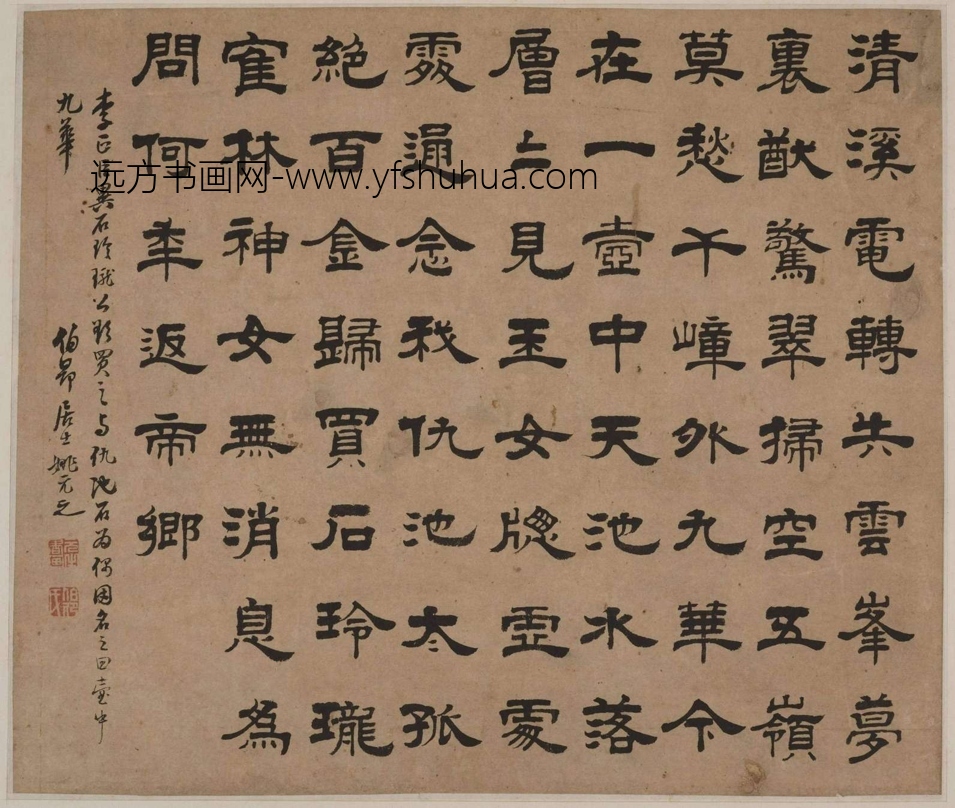 清溪電轉失雲峯夢
裏猷驚翠掃空五嶺
莫愁千嶂外九華今
在一壺中天池水落
層二見玉女牕虛處
處通念我仇池太孤
絕百金歸買石玲瓏
寉林神女無消息為
問何年返帝鄉
李正臣異石玲瓏公欲買之与仇池石為偶因名之曰壺中
九華
伯昂居士姚元之
远方书画网-www.yfshuhua.com